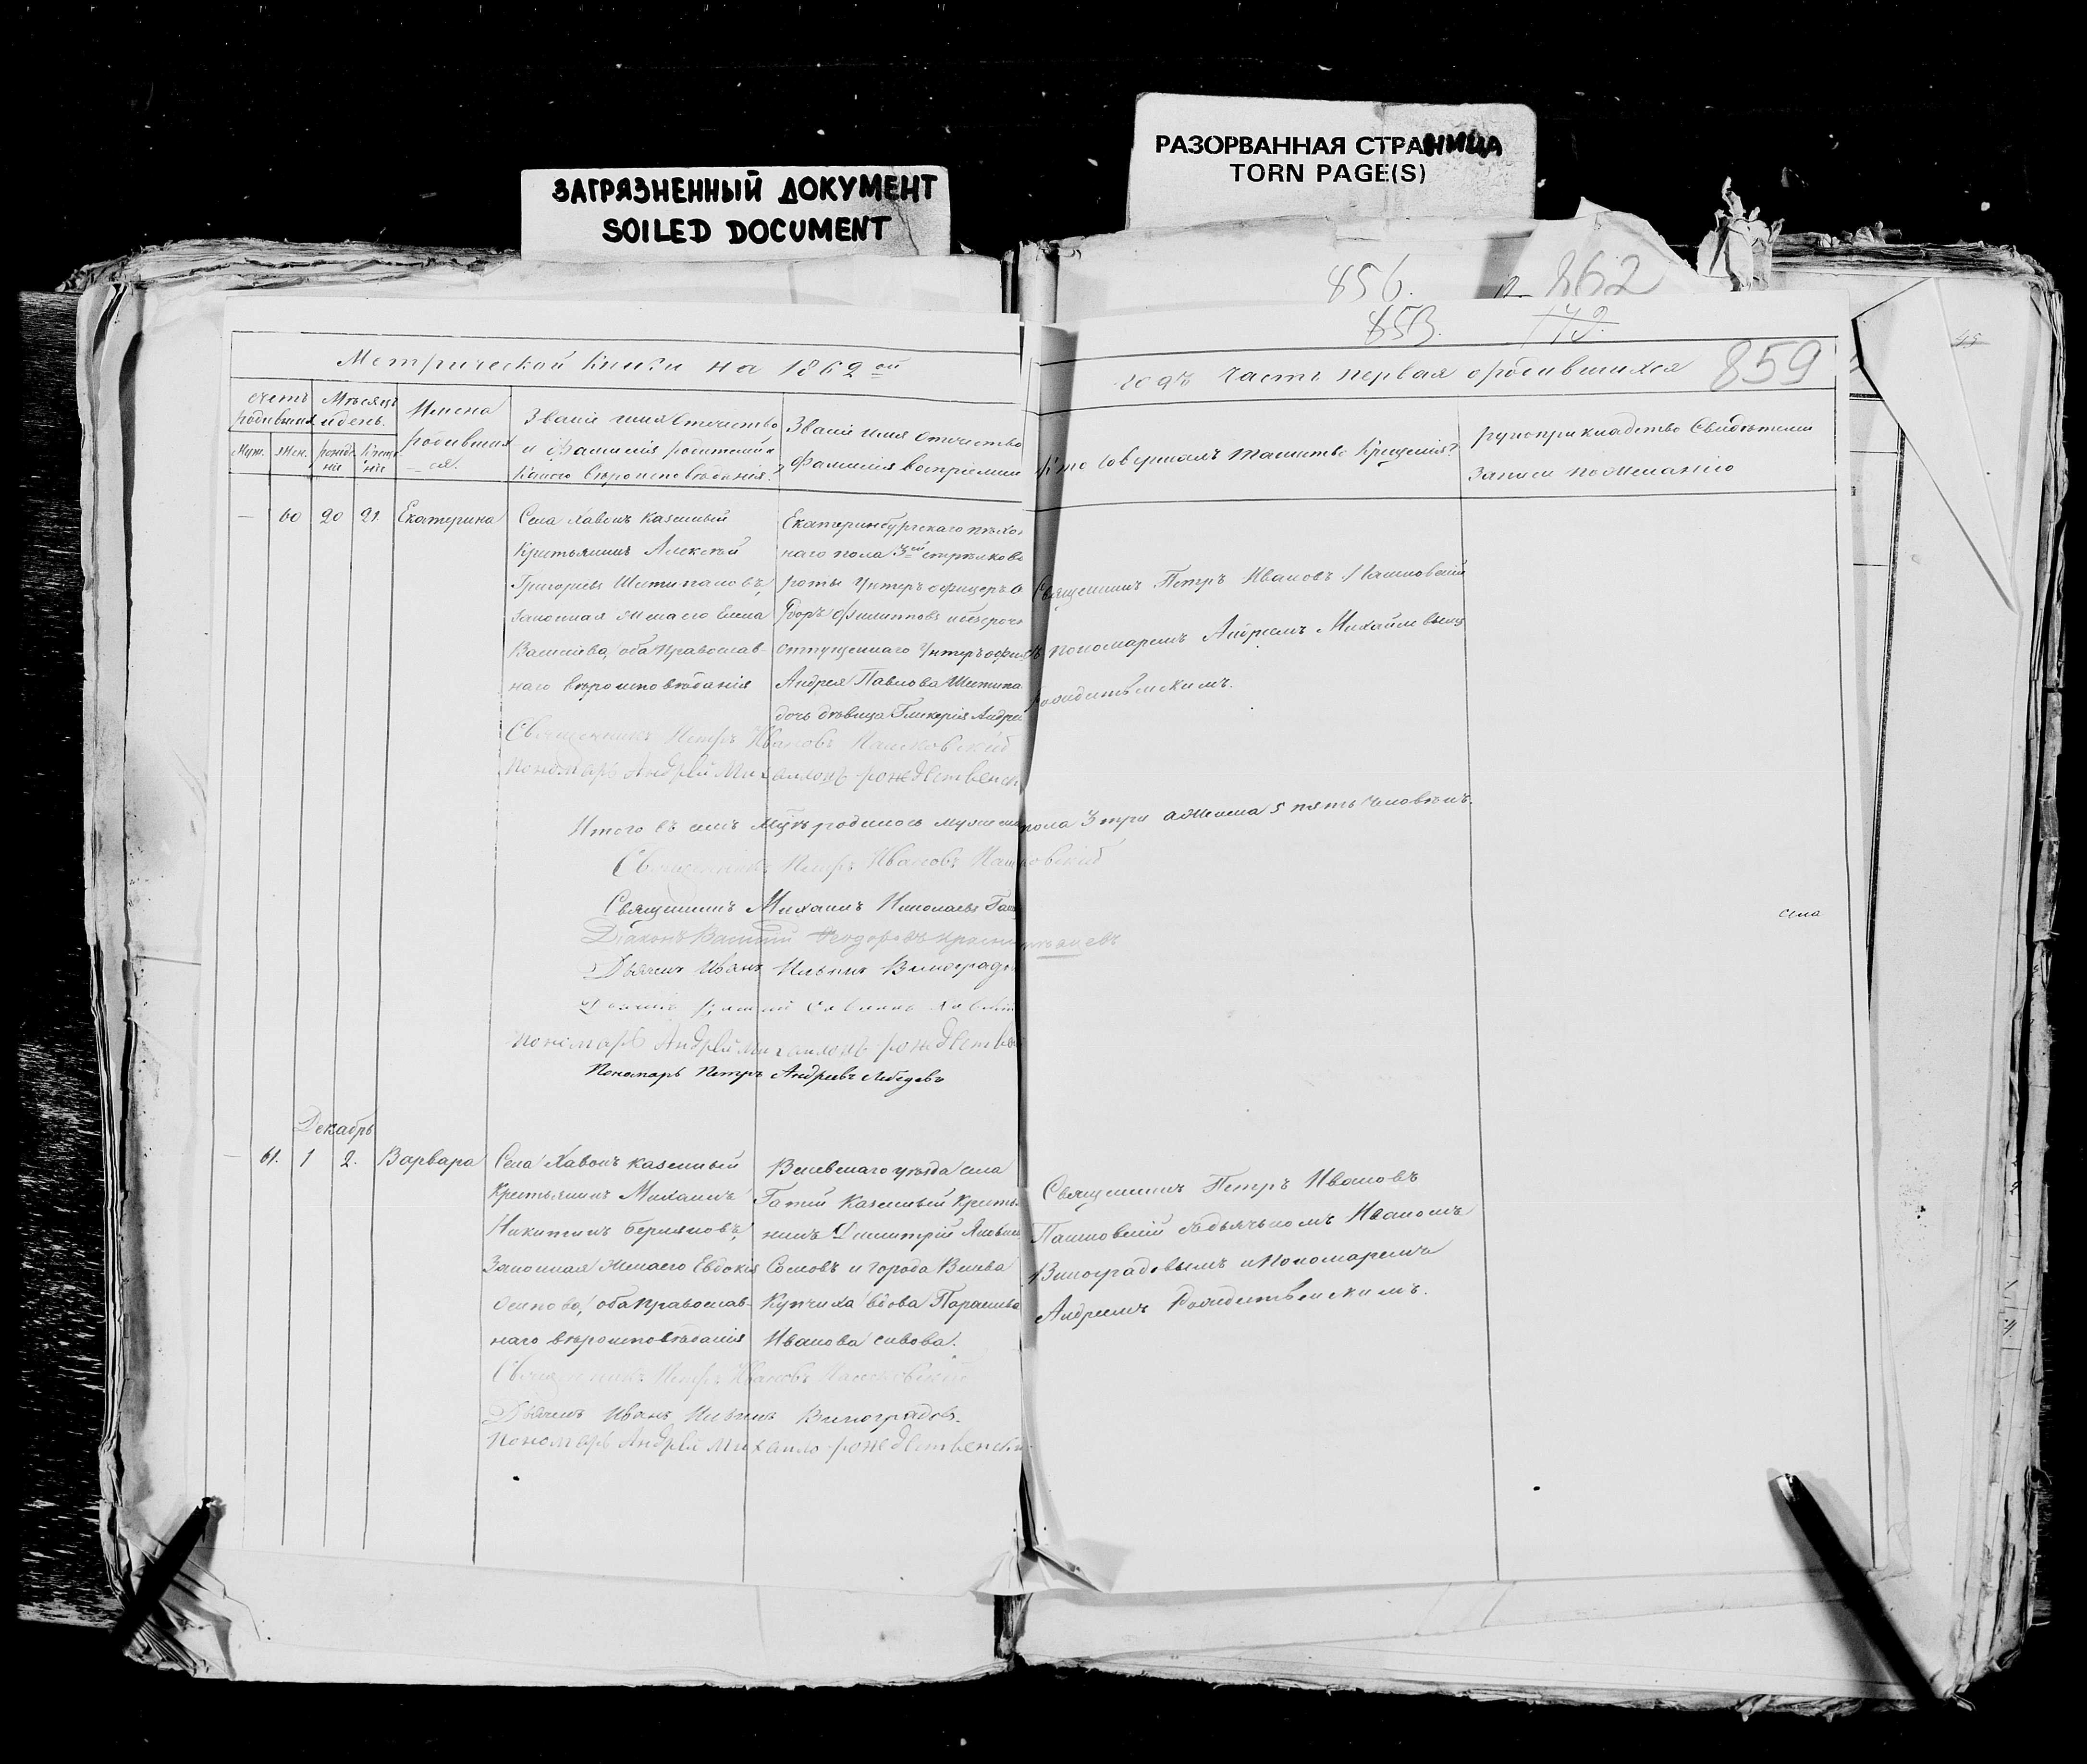 ЗАГРЯЗНЕННЫЙ ДОКУМЕНТ
SOILED DOCUMENT
РАЗОРВАННАЯ СТРАНИЦА
TORN PAGE(S)
856. 862
853.
859
Метрической книги на 1862 ой
годъ часть первая о родившихся
счетъ родившихся
Муж. Жен.
Мѣсяцъ и день.
рожденіе крещеніе
Имена родившихся.
Званіе имя отчество
и фамилія родителей и
какого вѣроисповѣданія?
Званіе имя отчество
фамилія воспріемни
Кто совершалъ таинство крещенія?
рукоприкладство свидѣтелей
записи по желанію
— 60 20 21. Екатерина
Села Хавокъ казенный
Крестьянинъ Алексѣй
Григорьевъ
законная жена его Елена
Васильева, оба Православ-
наго вѣроисповѣданія
Екатеринбургскаго пѣхот
наго полка 3ей стрѣлково
роты Унтеръ офицеръ Ѳ
Ѳдоръ Филипповъ и безсрочн
отпущеннаго Унтеръ офиц
Андрея Павлова
дочь дѣвица Гликерія Андре
Священникъ Петръ Ивановъ Пашковскій
съ пономаремъ Андреемъ Михайловымъ
Рождественскимъ.
Священникъ Петръ Ивановъ Пашковскій
Пономарь Андрей Михаиловъ Рождественск
Итого въ семъ м-цѣ родилось мужеска пола 3 три а женска 5 пять человѣкъ.
Священникъ Петръ Ивановъ Пашковскій
Священникъ Михаилъ Николаевъ
Діаконъ Василій Ѳеодоровъ
Дьячекъ Иванъ Ильинъ Виноградо
Пономарь Андрей Михаиловъ Рождестве
Пономарь Петръ Андреевъ Лебедевъ
села
Декабрь
— 61. 1 2. Варвара
Села Хавокъ казенный
Крестьянинъ Михаилъ
Никитинъ
Законная жена его Евдокія
Осипова, оба Православ-
наго вѣроисповѣданія
Веневскаго уѣзда села
Гатей казенный Кресть
нинъ Димитрій Яковлев
Сомовъ и города Венева
Купчиха вдова Параскева
Иванова
Священникъ Петръ Ивановъ
Пашковскій съ дьячькомъ Иваномъ
Виноградовымъ и Пономаремъ
Андреемъ Рождественскимъ.
Священникъ Петръ Ивановъ Пашковскій
Дьячекъ Иванъ Ильинъ Виноградовъ.
Пономарь Андрей Михаило Рождественски